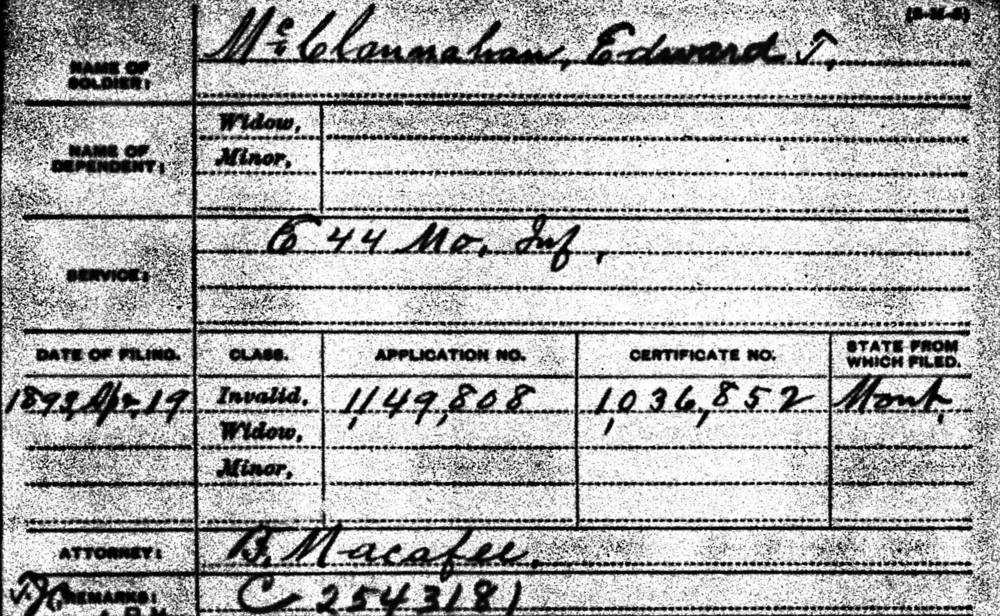 NAME OF SOLDIER: McClannahan, Edward T.
NAME OF DEPENDENT: Widow,
Minor,
SERVICE: E 44 Mo. Inf,
DATE OF FILING. CLASS. APPLICATION NO. CERTIFICATE NO. STATE FROM WHICH FILED.
1893, Apr. 19 Invalid, 1,149,808 1,036,852 Mont,
Widow,
Minor,
ATTORNEY: B. Macafee.
REMARKS: C 2543181